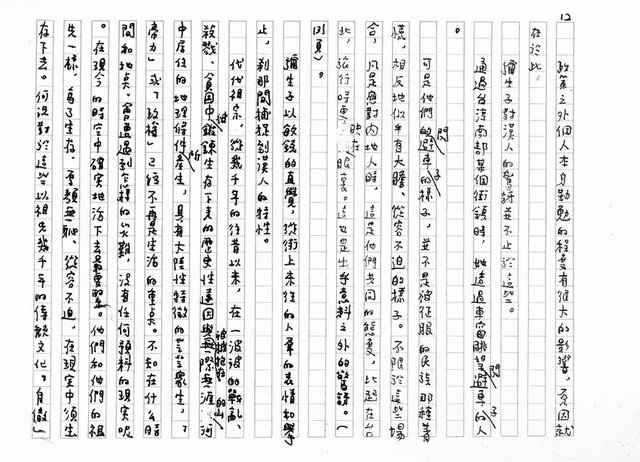 12
政策之外個人本身勤勉的程度有很大的影響，原因就
在於此。
彌生子對漢人的驚訝並不止於這些。
通過台灣南部某個街鎮時，她透過車窗眺望避車的人
閃 子
。
可是他們的避車的樣子，並不是被征服的民族那種害
閃 子
慌，相反地似乎有大膽、從容不迫的樣子。不限於這些場
合，凡是應對內地人時，這是他們共同的態度，比起在台
北，旅行時更
映在
眼裏。這也是出乎意料之外的驚訝。（
131頁）。
彌生子以敏銳的直覺，從街上來往的人羣的表情和舉
止，剎那間捕捉到漢人的特性。
代代祖宗，從幾千年的往昔以來，在一波波的戰亂、
殺戮、貧困中鍛鍊生存下來的歷史性基因與無際無涯
被擁抱在 的山
河
中居住的地理條件產生，具有大陸性特徵的芸芸眾生。
所
「
帝力」或「政權」已經不再是生活的重点。不知在什么時
間和地点，會遭遇到怎樣的災難，沒有任何預料的現實呢
。在現今的時空中確實地活下去最要緊。他們和他們的祖
先一樣，為了生存，更頹無聊，從容不迫，在現實中須生
存下去。何況對於這些以祖先幾千年的傳統文化「自傲」